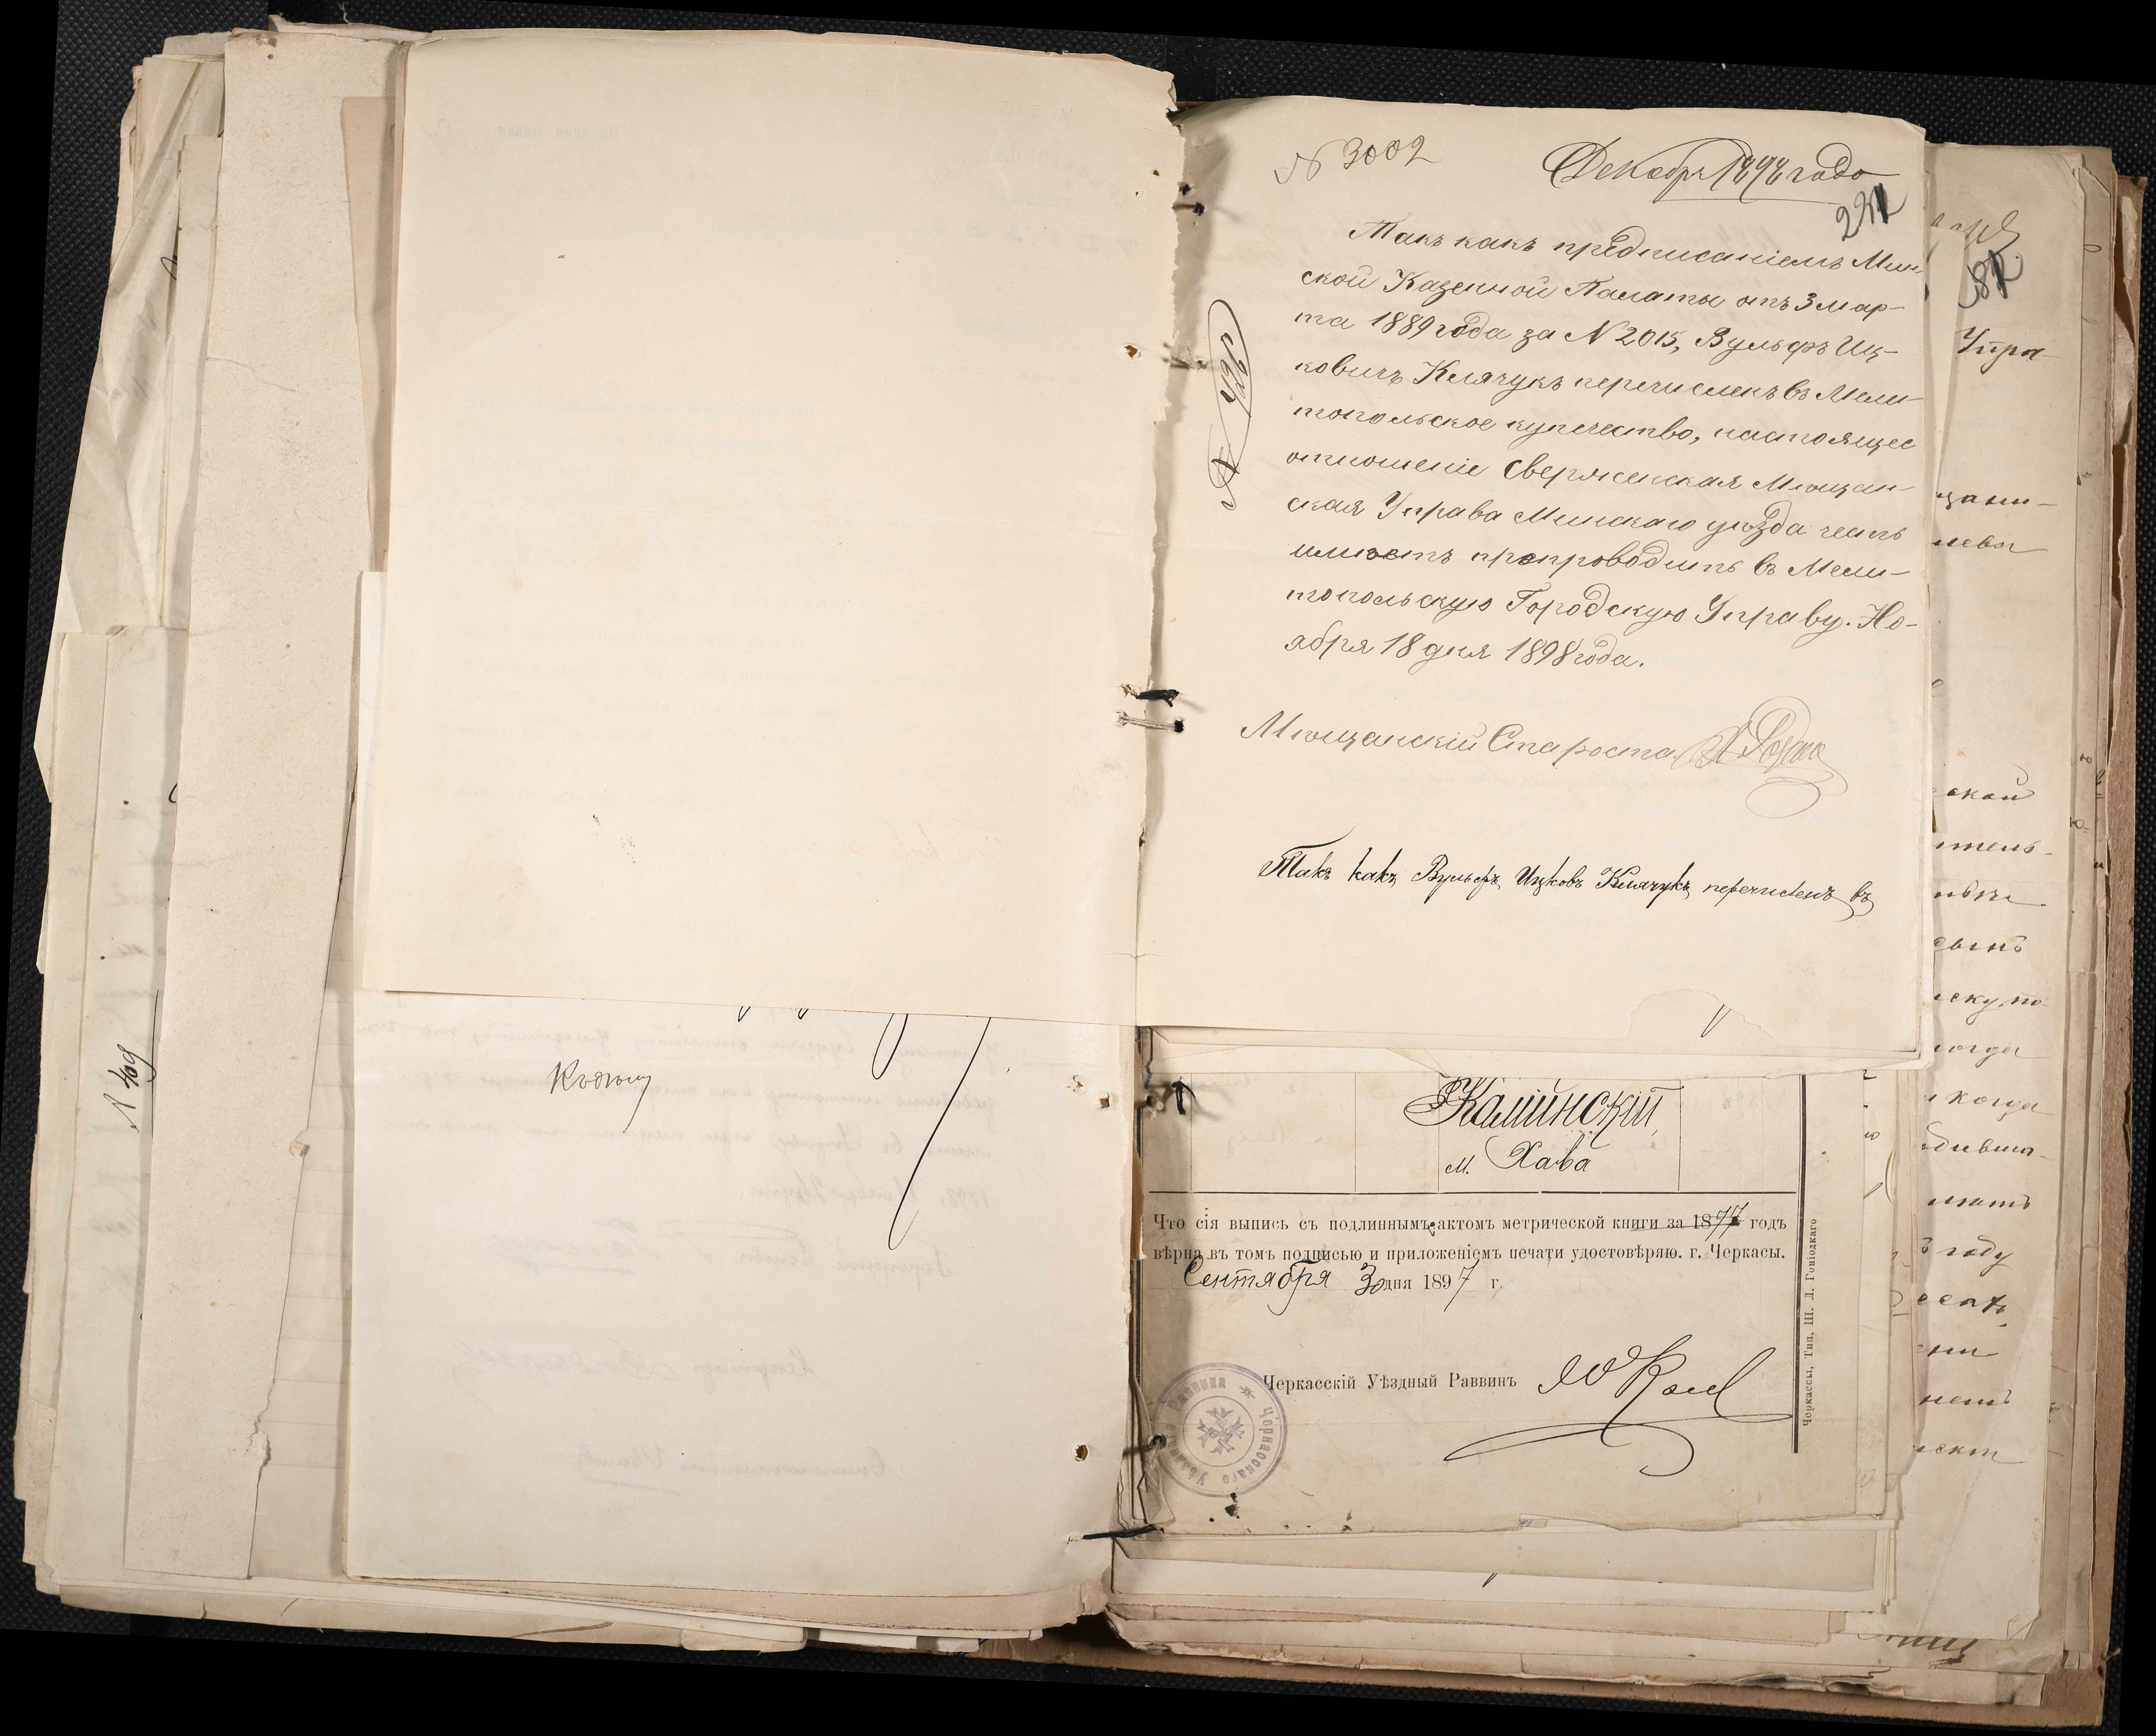 N 409
Къ дѣлу
N 3002
Декабря 1898 года
221
N 426
Такъ какъ предписаніемъ Мин-
ской Казенной Палаты отъ 3 мар-
та 1889 года за N 2015, Вульфъ Иц-
ковичъ Клячукъ перечисленъ въ Мели-
топольское купечество, настоящее
отношеніе Сверженская Мѣщан-
ская Управа Минскаго уѣзда честь
имѣетъ препроводить въ Мели-
топольскую Городскую Управу. Но-
ября 18 дня 1898 года.
Мѣщанскій Староста
Такъ какъ Вульфъ Ицковъ Клячукъ перечисленъ въ
Калинскій,
м. Хава
Что сія выпись съ подлиннымъ актомъ метрической книги за 1877 годъ
вѣрна въ томъ подписью и приложеніемъ печати удостовѣряю. г. Черкасы.
Сентября 30 дня 1897 г.
Черкасскій Уѣздный Раввинъ
Черкассы, Тип. Ш. Л. Гоніодкаго
Черкасскаго Уѣзднаго Раввина
Упра
щани-
ской
итель-
сынъ
ску, по
когда
когда
бивша-
мать
году